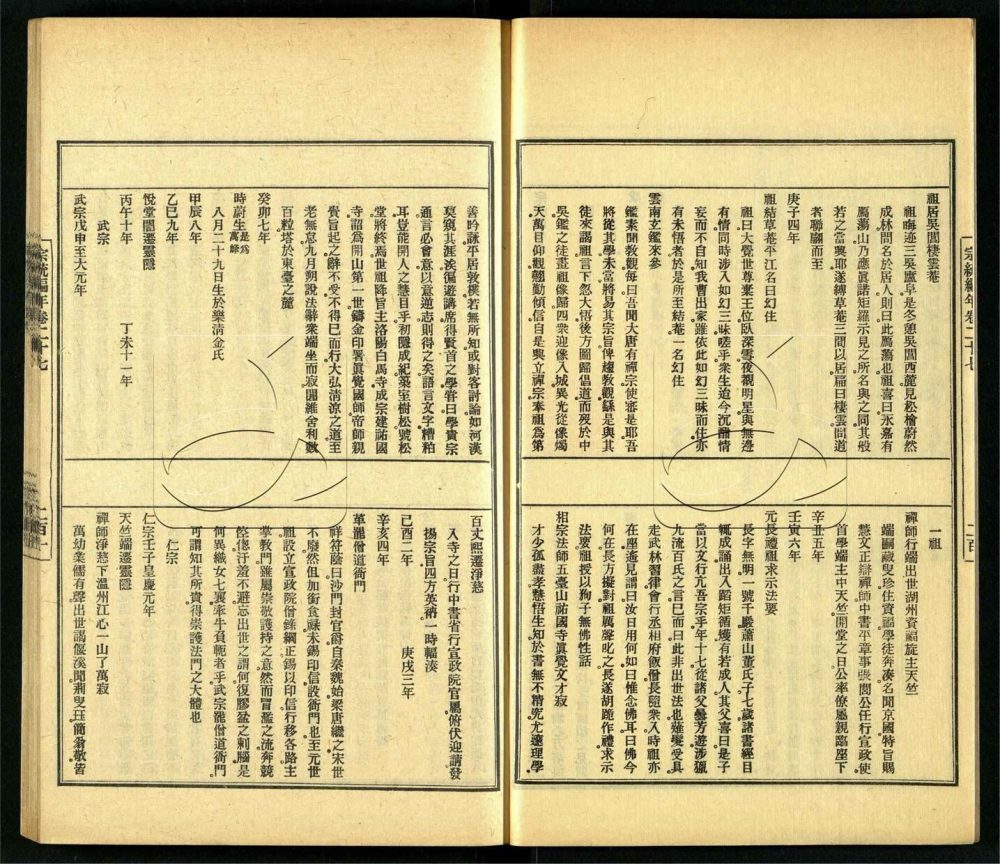 宗統編年卷二十七
二百
祖居吳閶棲雲菴
祖晦迹三吳廬阜是冬憩吳閶西麓見松檜蔚然
成林問名於居人則曰此鴈蕩也祖喜曰永嘉有
鴈蕩山乃應眞諾矩羅示見之所名與之同其殆
若之當奧耶遂縛草菴三間以居扁曰棲雲問道
者聯翩而至
庚子四年
祖結草菴平江名曰幻住
祖曰大覺世尊棄王位臥深雪夜覩明星與無邊
有情同時涉入如幻三昧嗟乎衆生迨今沉酣情
妄而不自知我曹出家雖依此如幻三昧而住亦
有未悟者於是所至結菴一名幻住
雲南玄鑑來參
鑑素閑敎觀每曰吾聞大唐有禪宗使審是耶吾
將從其學未當將易其宗旨俾趨敎觀繇是與其
徒來謁祖言下忽大悟後方圖歸倡道而歿於中
吳鑑之徒畫祖像歸四衆迎像入城異光從像燭
天萬目仰觀翹勤傾信自是興立禪宗奉祖爲第
一祖
禪師行端出世湖州資福旋主天竺
端嗣藏叟珍住資福學徒奔湊名聞京國特旨賜
慧文正辯禪師中書平章事張閭公任行宣政使
首學端主中天竺開堂之日公率僚屬親臨座下
辛丑五年
壬寅六年
元長禮祖求示法要
長字無明一號千巖蕭山董氏子七歲諸書經目
輒成誦出入蹈矩循矱有若成人其父喜曰是子
當以文行亢吾宗乎年十七從諸父曇芳遊涉獵
九流百氏之言已而曰此非出世法也薙髮受具
走武林習律會行丞相府飯僧長隨衆入時祖亦
在座遙見謂曰汝日用何如曰惟念佛耳曰佛今
何在長方擬對祖厲聲叱之長遂胡跪作禮求示
法要祖授以狗子無佛性話
相宗法師五臺山祐國寺眞覺文才寂
才少孤盡孝慧悟生知於書無不精究尤邃理學
善吟詠平居敦樸若無所知或對客討論如河漢
莫窺其涯涘徧遊講席得賢首之學嘗曰學貴宗
通言必會意以意逆志則得之矣語言文字糟粕
耳豈能開人之慧目乎初隱成紀築室樹松號松
堂將終焉世祖降旨主洛陽白馬寺成宗建祐國
寺詔爲開山第一世鑄金印署眞覺國師帝師親
賷旨起之辭不受不得已而行大弘淸涼之道至
老無怠九月朔說法辭衆端坐而寂闍維舍利數
百粒塔於東臺之麓
癸卯七年
時蔚生是爲萬峰
八月二十九日生於樂淸金氏
甲辰八年
乙巳九年
悅堂誾遷靈隱
丙午十年 丁未十一年
武宗
武宗戊申至大元年
百丈熙遷淨慈
入寺之日行中書省行宣政院官屬俯伏迎請發
揚宗旨四方英衲一時輻湊
己酉二年 庚戌三年
辛亥四年
革罷僧道衙門
祥符蔭曰沙門封官爵自秦魏始梁唐繼之宋世
不廢然但加銜食祿未錫印信設衙門也至元世
祖設立宣政院僧錄綱正錫以印信行移各路主
掌敎門雖屬崇敬護持之意然而冒濫之流奔競
倥傯汗羞不避忘出世之謂何復膠盆之刺腦是
何異織女七襄牽牛負軛者乎武宗罷僧道衙門
可謂知其所貴得崇護法門之大體也
仁宗
仁宗壬子皇慶元年
天竺端遷靈隱
禪師淨慈下溫州江心一山了萬寂
萬幼業儒有聲出世謁偃溪聞荆叟珏簡翁敬皆
宗統編年卷二十七
二百一